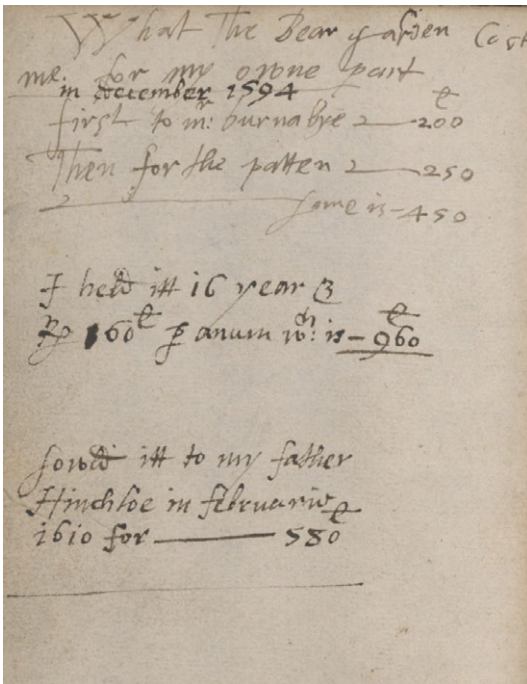 What The Bear garden Cost
me. for my owne part
in december 1594
first to mr: burnabye — 200 ll
Then for the patten — 250
some is - 450
I held itt 16 year &
R 160 ll p anum wch: is - 960 ll
sowld itt to my father
Hinchloe in februarie
1610 for — 580 ll